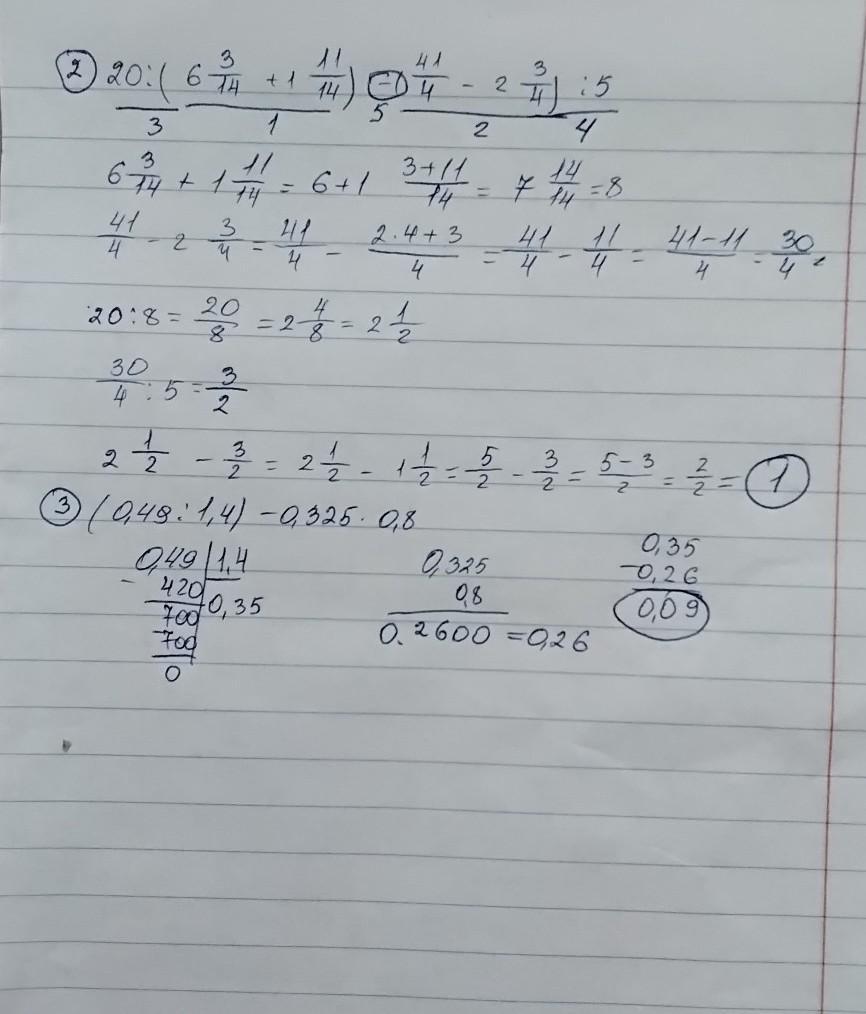 ② 20:( 6 3/14 + 1 11/14 ) - ( 41/4 - 2 3/4 ) : 5
3 1 5 2 4
6 3/14 + 1 11/14 = 6+1 (3+11)/14 = 7 14/14 = 8
41/4 - 2 3/4 = 41/4 - (2·4+3)/4 = 41/4 - 11/4 = (41-11)/4 = 30/4
20:8 = 20/8 = 2 4/8 = 2 1/2
30/4 : 5 = 3/2
2 1/2 - 3/2 = 2 1/2 - 1 1/2 = 5/2 - 3/2 = (5-3)/2 = 2/2 = 1
③ (0,49:1,4) - 0,325 · 0,8
0,49 | 1,4
- 420 0,35
700
700
0
0,325
0,8
0.2600 = 0,26
0,35
-0,26
0,09